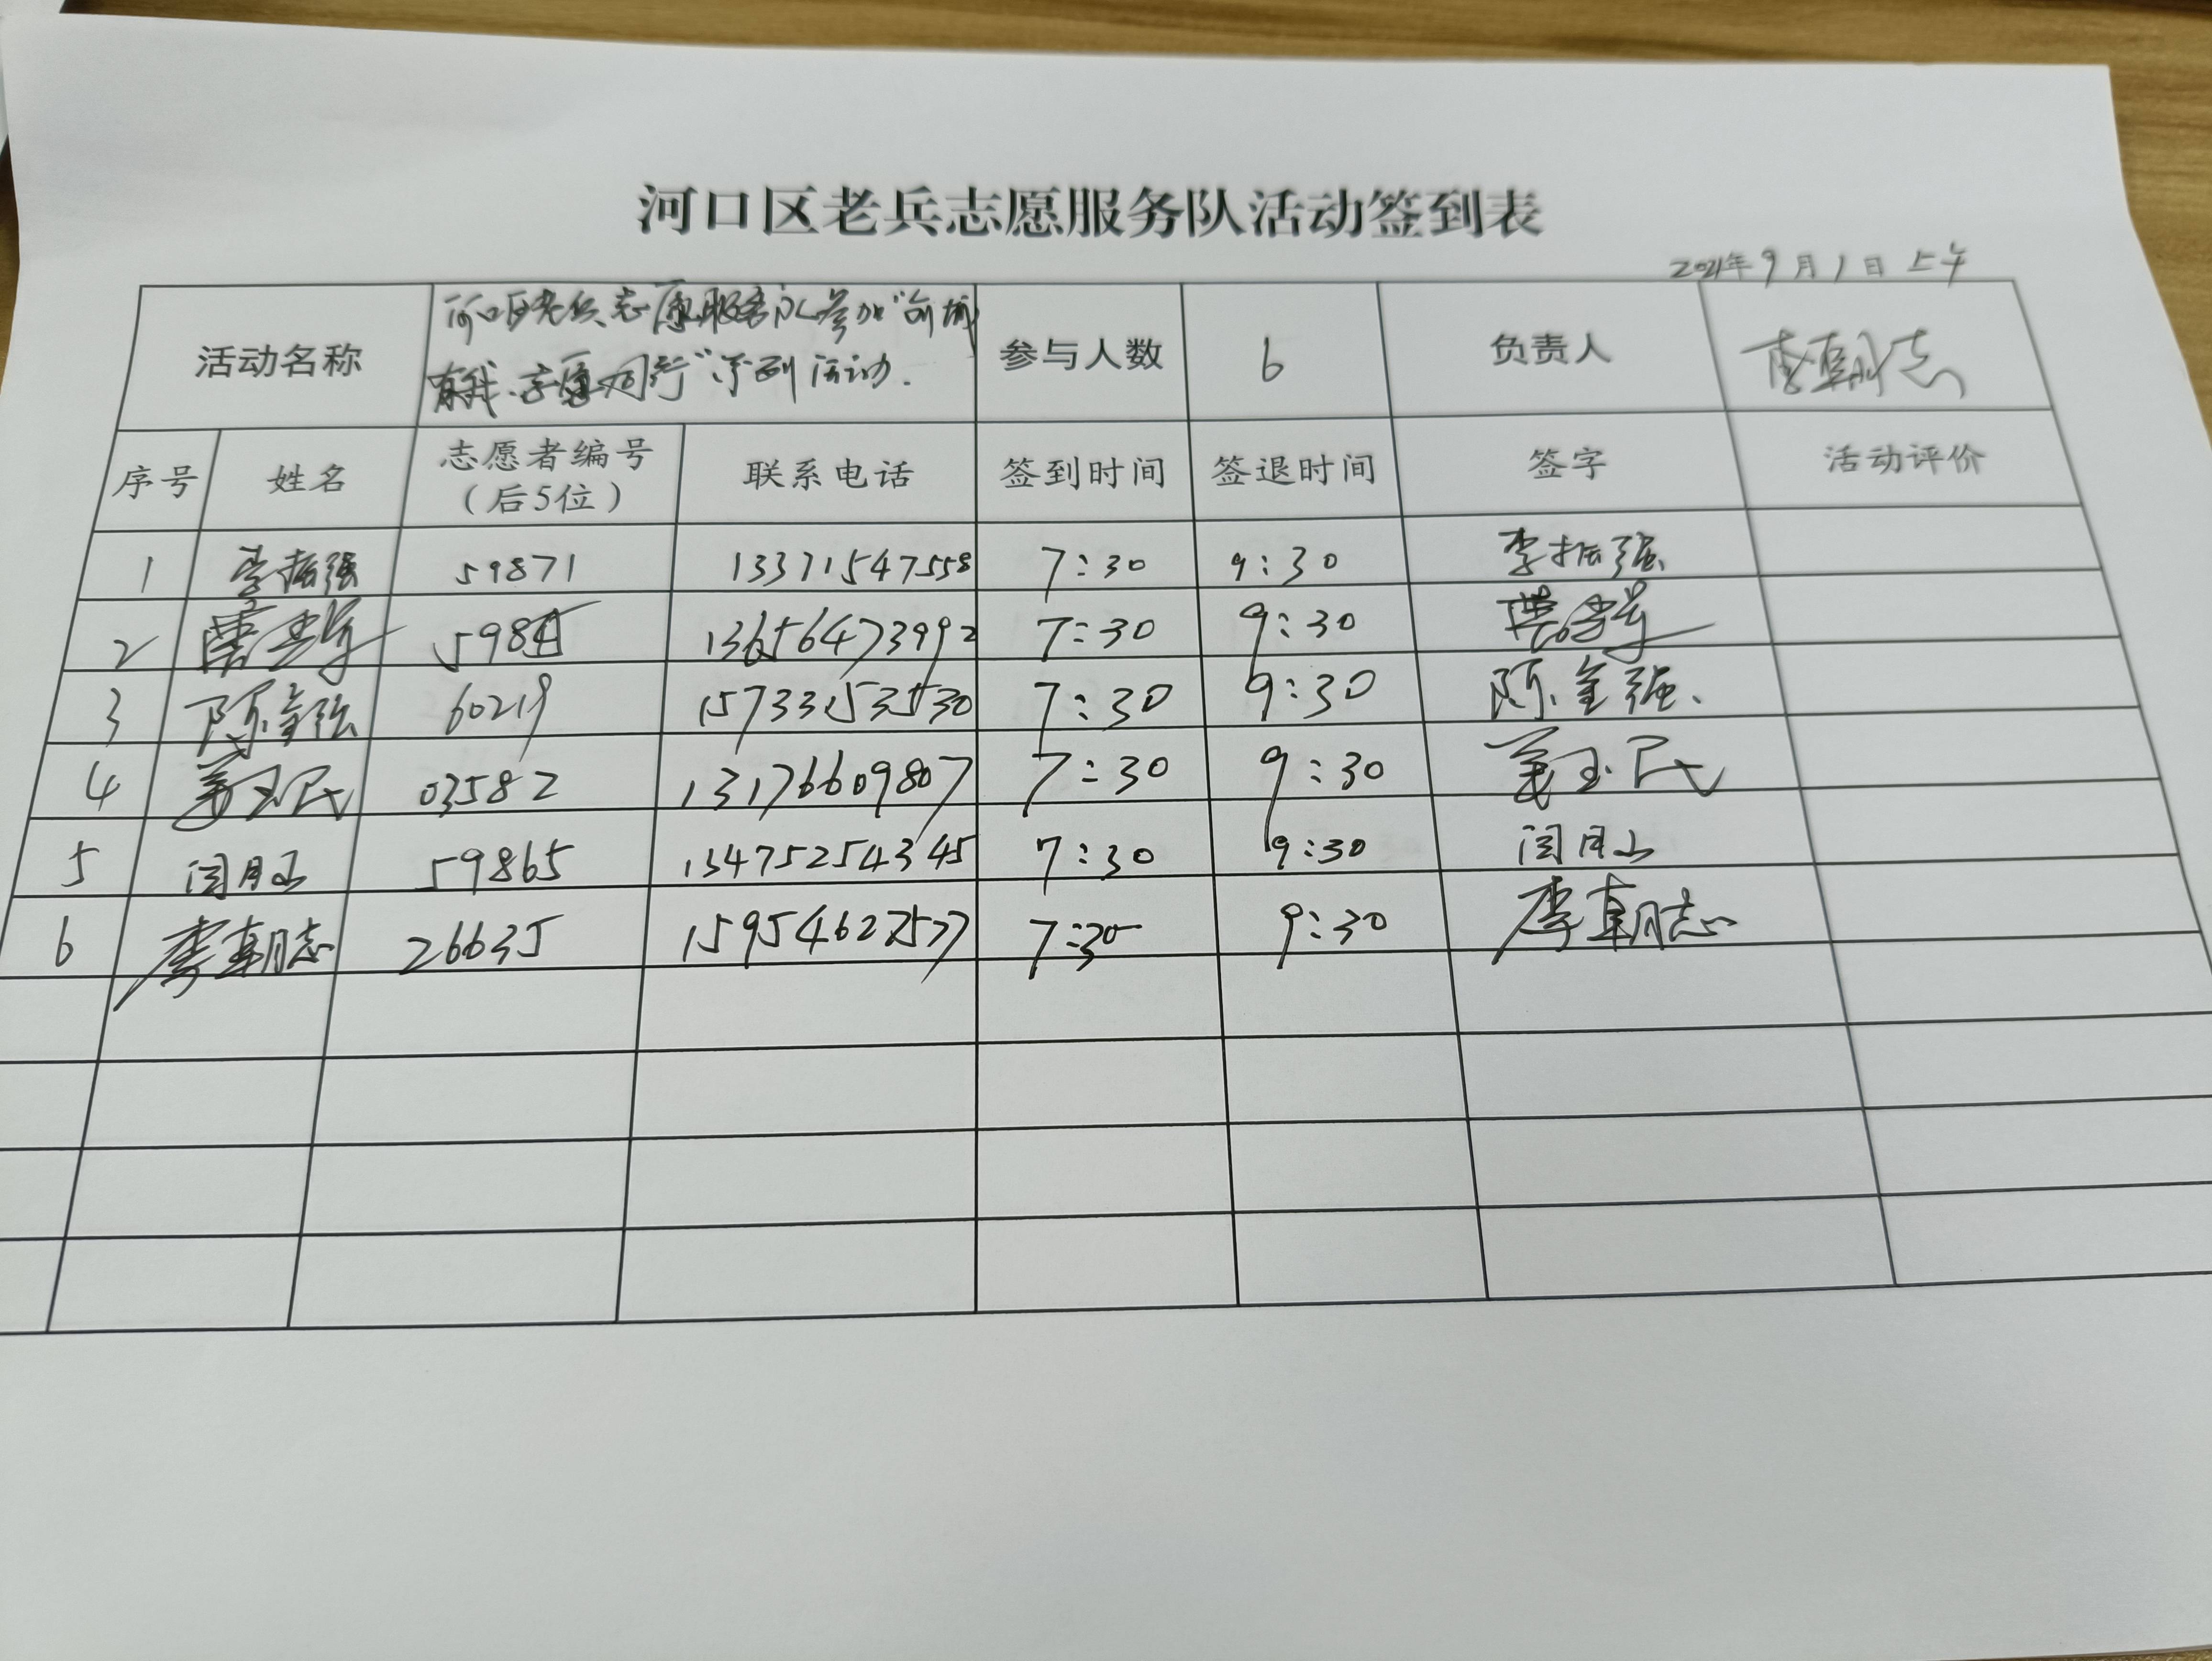 河口区老兵志愿服务队活动签到表
2021年9月1日 上午
活动名称 河口区老兵志愿服务队参加“创城 参与人数 6 负责人 李朝志
有我、志愿同行”系列活动.
序号 姓名 志愿者编号 联系电话 签到时间 签退时间 签字 活动评价
（后5位）
1 李振强 59871 13371547558 7:30 9:30 李振强
2 5984 13656473992 7:30 9:30
3 陈金强 60219 15733153530 7:30 9:30 陈金强
4 姜玉民 03582 13176609807 7:30 9:30 姜玉民
5 闫月山 59865 13475254345 7:30 9:30 闫月山
6 李朝志 26635 15954627577 7:30 9:30 李朝志